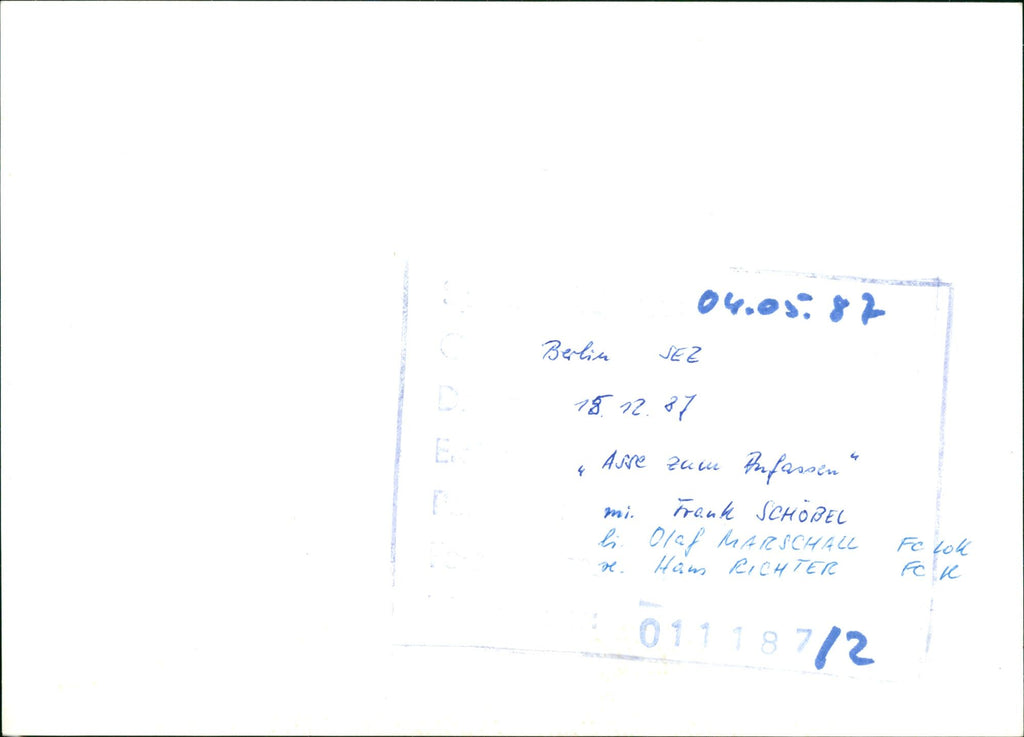 04.05.87
Berlin SEZ
15.12.87
„Asse zum Anfassen"
mi. Frank SCHÖBEL
li. Olaf MARSCHALL FC LOK
re. Hans RICHTER FC K
011187/2